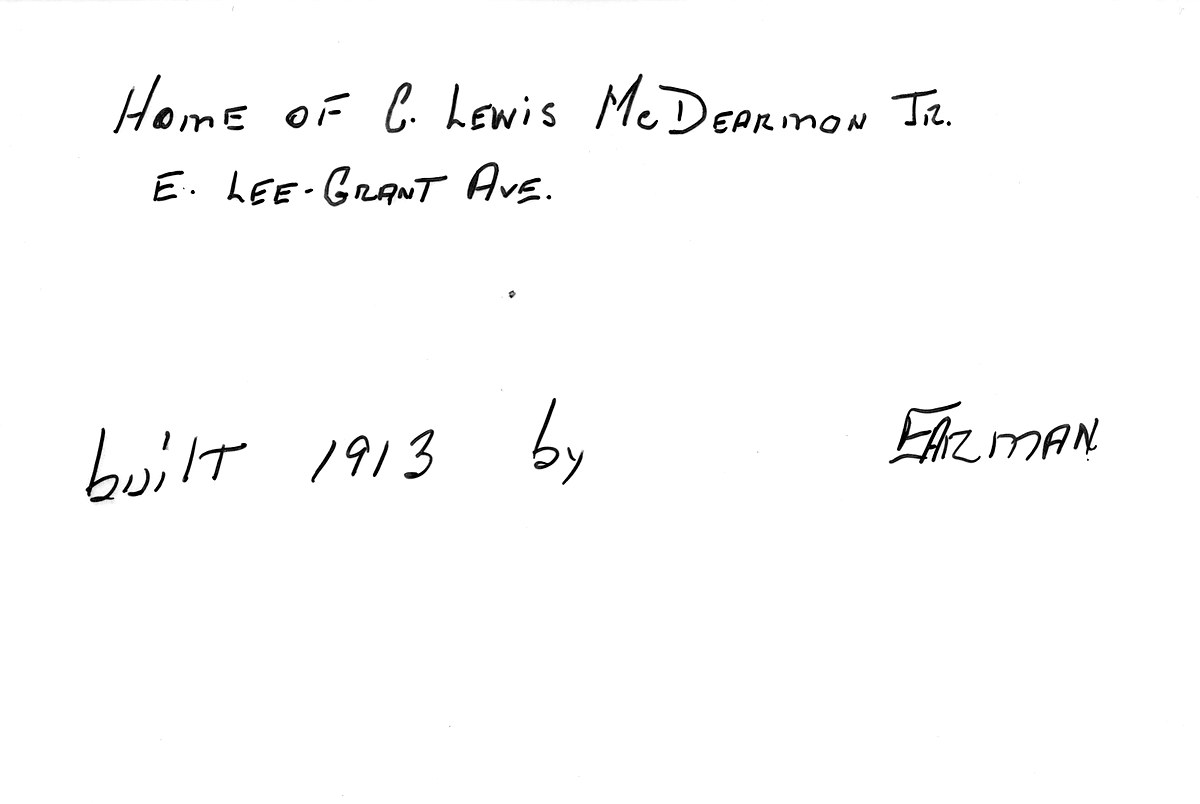 Home of C. Lewis McDearmon Jr.
E. Lee-Grant Ave.
built 1913 by Earman